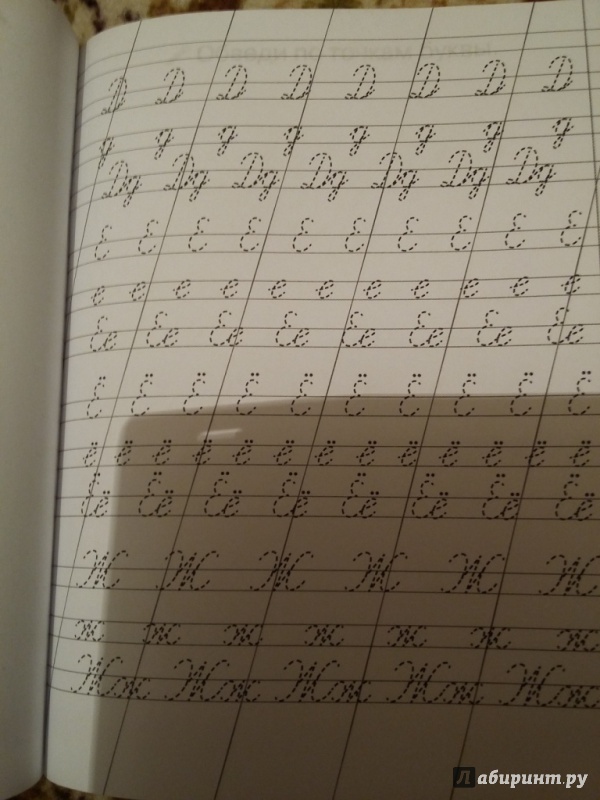 Обведи по точкам буквы.
Д Д Д Д Д Д Д Д
д д д д д д д д
Дд Дд Дд Дд Дд Дд Дд
Е Е Е Е Е Е Е Е Е Е
е е е е е е е е е е е
Ее Ее Ее Ее Ее Ее Ее Ее
Ё Ё Ё Ё Ё Ё Ё Ё Ё Ё
ё ё ё ё ё ё ё ё ё ё ё ё ё
Ёё Ёё Ёё Ёё Ёё Ёё Ёё Ёё
Ж Ж Ж Ж Ж Ж
ж ж ж ж ж ж ж
Жж Жж Жж Жж Жж
Лабиринт.ру